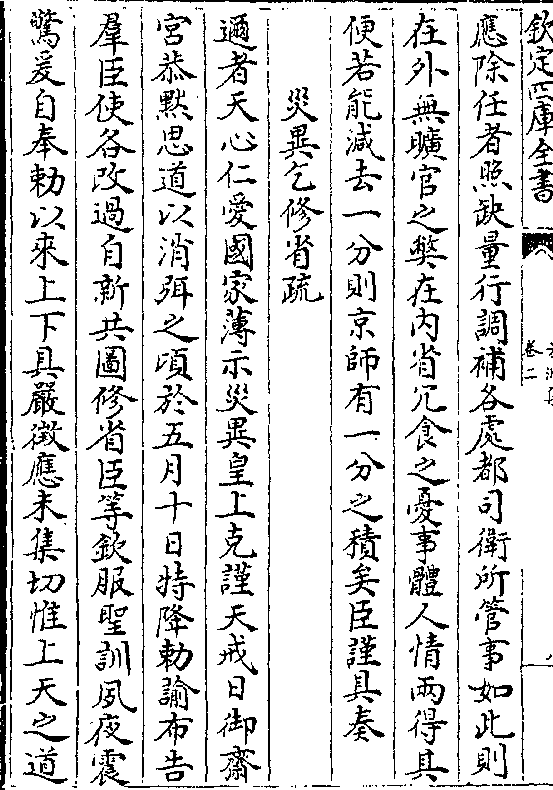 欽定四庫全書
卷二
應除任者照缺量行調補各處都司衛所管事如此則
在外無曠官之獘在内省冗食之憂事體人情兩得其
便若能減去一分則京師有一分之積矣臣謹具奏
災異乞修省疏
邇者天心仁愛國家薄示災異皇上克謹天戒日御齋
宮恭默思道以消弭之頃於五月十日特降勅諭布告
羣臣使各改過自新共圖修省臣等欽服聖訓夙夜震
驚爰自奉勅以來上下具嚴徵應未集切惟上天之道